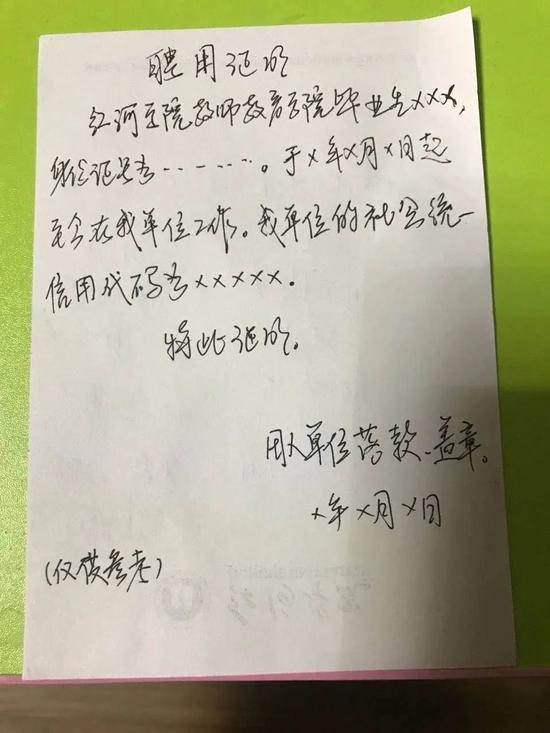 聘用证明
红河学院教师教育学院毕业生×××,
身份证号为-------。于×年×月×日起
至今在我单位工作。我单位的社会统一
信用代码为×××××.
特此证明。
用人单位落款、盖章。
×年×月×日
(仅供参考)